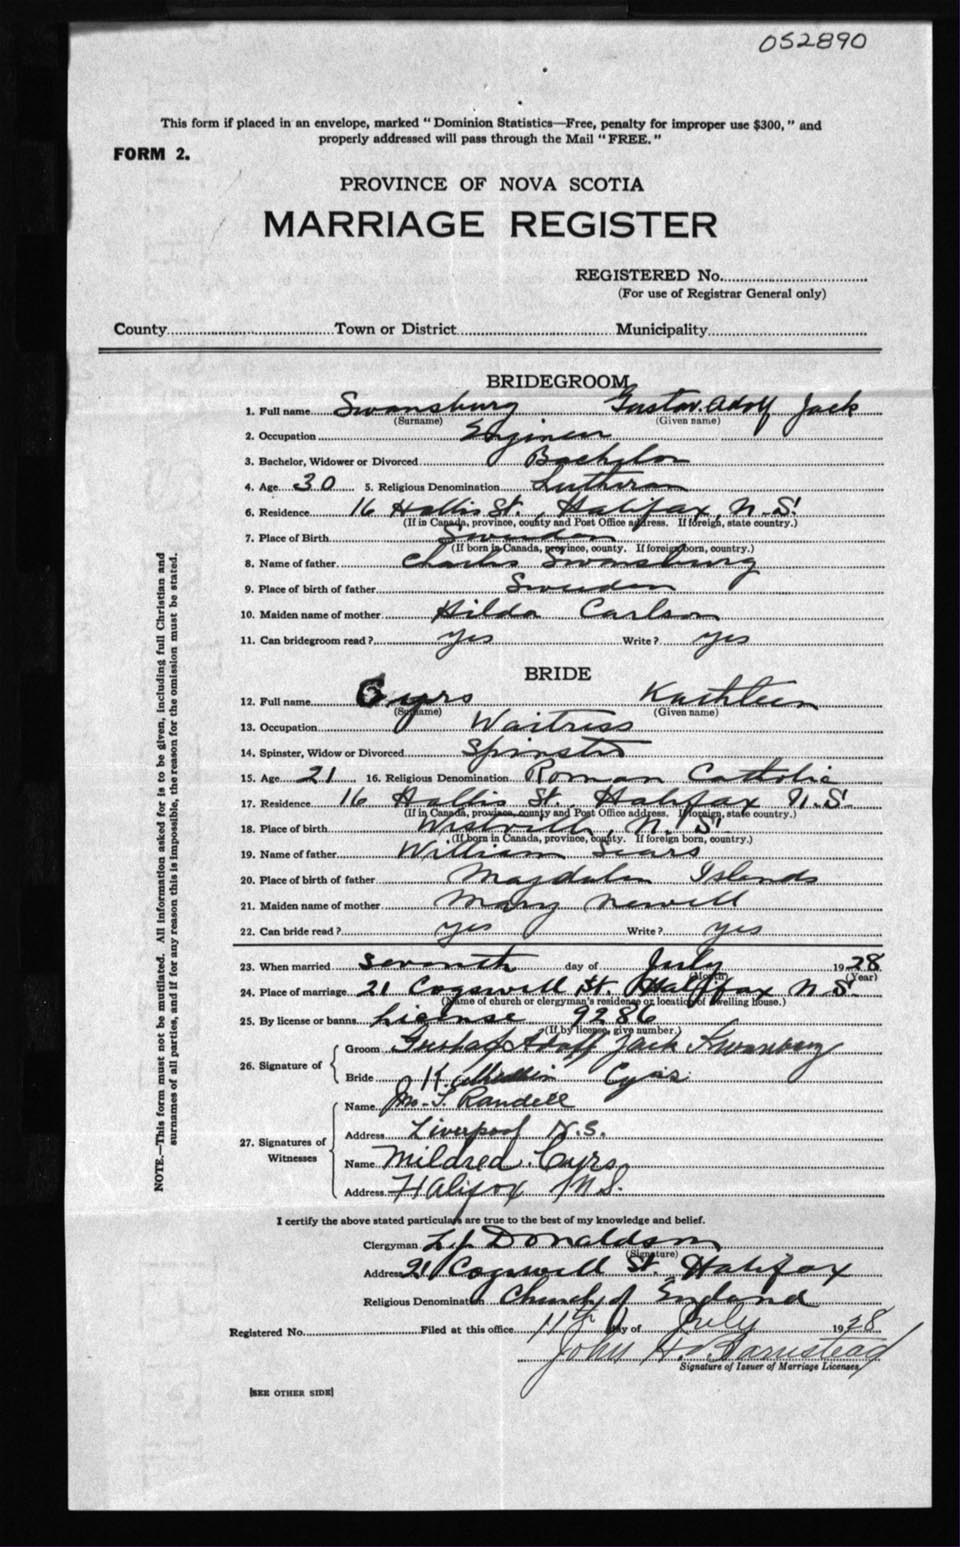 052890
This form if placed in an envelope, marked "Dominion Statistics—Free, penalty for improper use $300," and
properly addressed will pass through the Mail "FREE."
FORM 2.
PROVINCE OF NOVA SCOTIA
MARRIAGE REGISTER
REGISTERED No.
(For use of Registrar General only)
County Town or District Municipality
BRIDEGROOM
1. Full name Swansburg Gustav Adolf Jack
(Surname) (Given name)
2. Occupation Enginer
3. Bachelor, Widower or Divorced Bachelor
4. Age 30 5. Religious Denomination Lutheran
6. Residence 16 Hollis St. Halifax, N.S.
(If in Canada, province, county and Post Office address. If foreign, state country.)
7. Place of Birth Sweden
(If born in Canada, province, county. If foreign born, country.)
8. Name of father Charles Swansburg
9. Place of birth of father Sweden
10. Maiden name of mother Hilda Carlson
11. Can bridegroom read? yes Write? yes
BRIDE
12. Full name Cyrs Kathleen
(Surname) (Given name)
13. Occupation Waitress
14. Spinster, Widow or Divorced Spinster
15. Age 21 16. Religious Denomination Roman Catholic
17. Residence 16 Hollis St. Halifax N.S.
(If in Canada, province, county and Post Office address. If foreign, state country.)
18. Place of birth Westville, N.S.
(If born in Canada, province, county. If foreign born, country.)
19. Name of father William Sears
20. Place of birth of father Magdalen Islands
21. Maiden name of mother Mary Newell
22. Can bride read? yes Write? yes
23. When married seventh day of July 1928
(Month) (Year)
24. Place of marriage 21 Cogswell St. Halifax N.S.
(Name of church or clergyman's residence or location of dwelling house.)
25. By license or banns License 9286
(If by license, give number.)
26. Signature of
Groom Gustaf Adolf Jack Swansburg
Bride Kathleen Cyrs
27. Signatures of Witnesses
Name Jno. S. Randell
Address Liverpool N.S.
Name Mildred Cyrs
Address Halifax N.S.
I certify the above stated particulars are true to the best of my knowledge and belief.
Clergyman L. J. Donaldson
(Signature)
Address 21 Cogswell St. Halifax
Religious Denomination Church of England
Registered No. Filed at this office 11th day of July 1928
John H. Barnstead
Signature of Issuer of Marriage Licenses
[SEE OTHER SIDE]
NOTE.—This form must not be mutilated. All information asked for is to be given, including full Christian and
surnames of all parties, and if for any reason this is impossible, the reason for the omission must be stated.